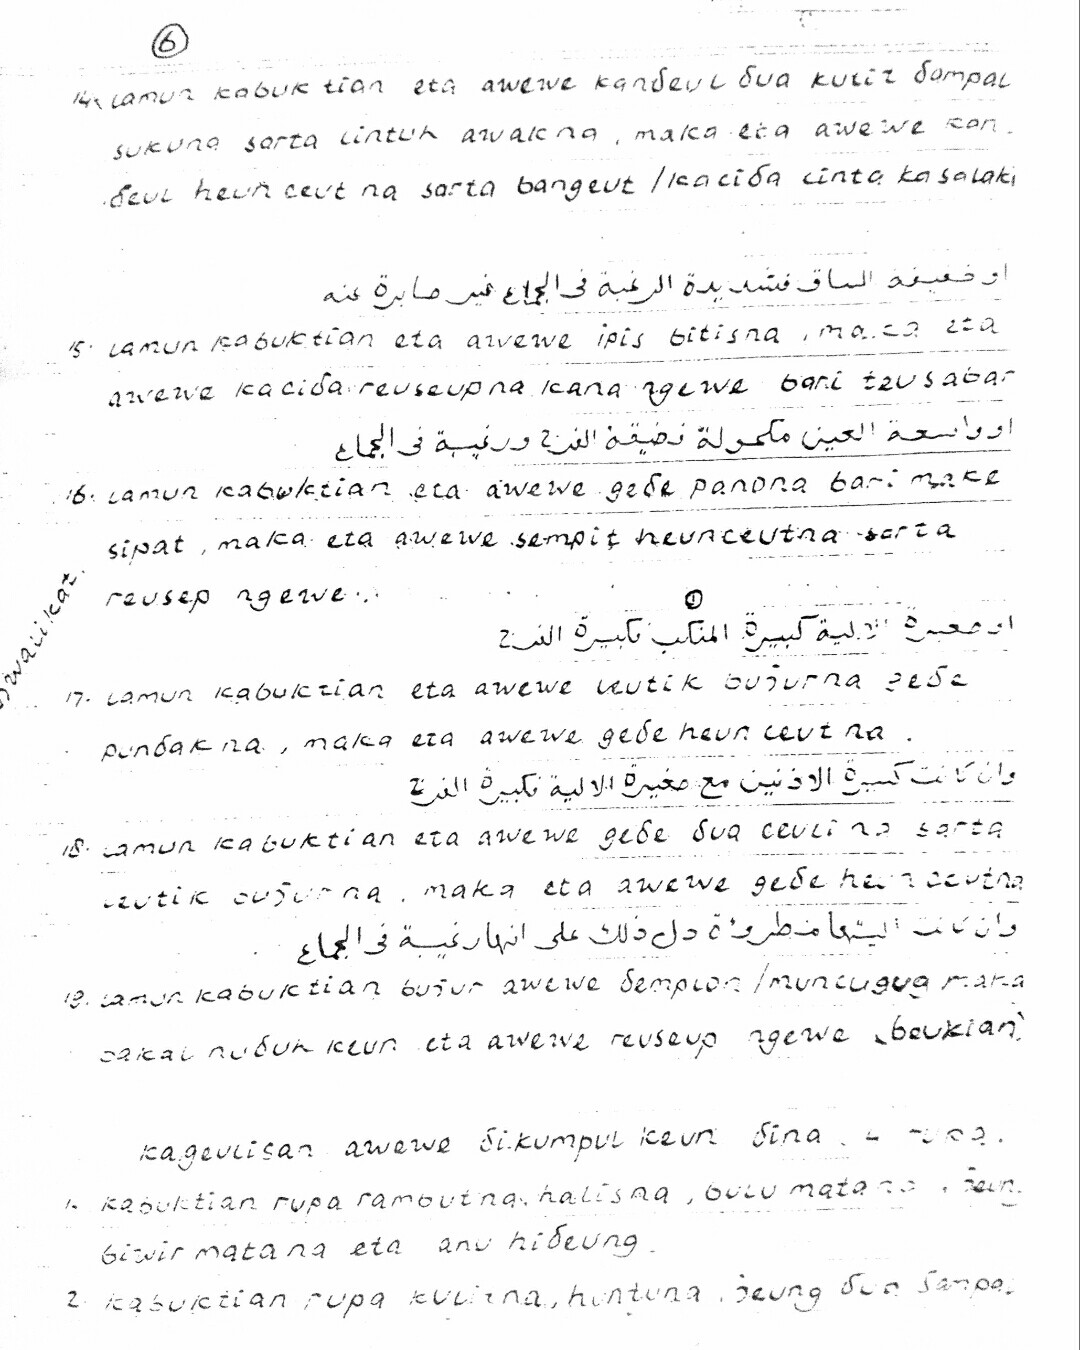 6
14. Lamun kabuktian eta awewe kandeul dua kulit dampal
sukuna sarta lintuh awakna, maka eta awewe kan
deul heunceutna sarta bangeut / kacida cinta ka salaki
او ضعيفة الساق فشديدة الرغبة فى الجماع غير صابرة عنه
15. Lamun kabuktian eta awewe ipis bitisna, maka eta
awewe kacida reuseupna kana ngewe bari teu sabar
او واسعة العين مكحولة فضيقة الفرج ورغيبة فى الجماع
16. Lamun kabuktian eta awewe gede panona bari make
sipat, maka eta awewe sempit heunceutna sarta
reusep ngewe..
1
او صغيرة الالية كبيرة المنكب فكبيرة الفرج
17. Lamun kabuktian eta awewe leutik bujurna gede
pundakna, maka eta awewe gede heunceutna.
وان كانت كبيرة الاذنين مع صغيرة الالية فكبيرة الفرج
18. Lamun kabuktian eta awewe gede dua ceulina sarta
leutik bujurna, maka eta awewe gede heunceutna
وان كانت اليتها دل ذلك على انها رغيبة فى الجماع
19. Lamun kabuktian bujur awewe demplon / muncugug maka
bakal nuduhkeun eta awewe reuseup ngewe (beukian)
Kageulisan awewe dikumpulkeun dina 4 rupa.
1. Kabuktian rupa rambutna, halisna, bulu matana, jeung
biwir matana eta anu hideung.
2. Kabuktian rupa kulitna, huntuna, jeung dua dampal